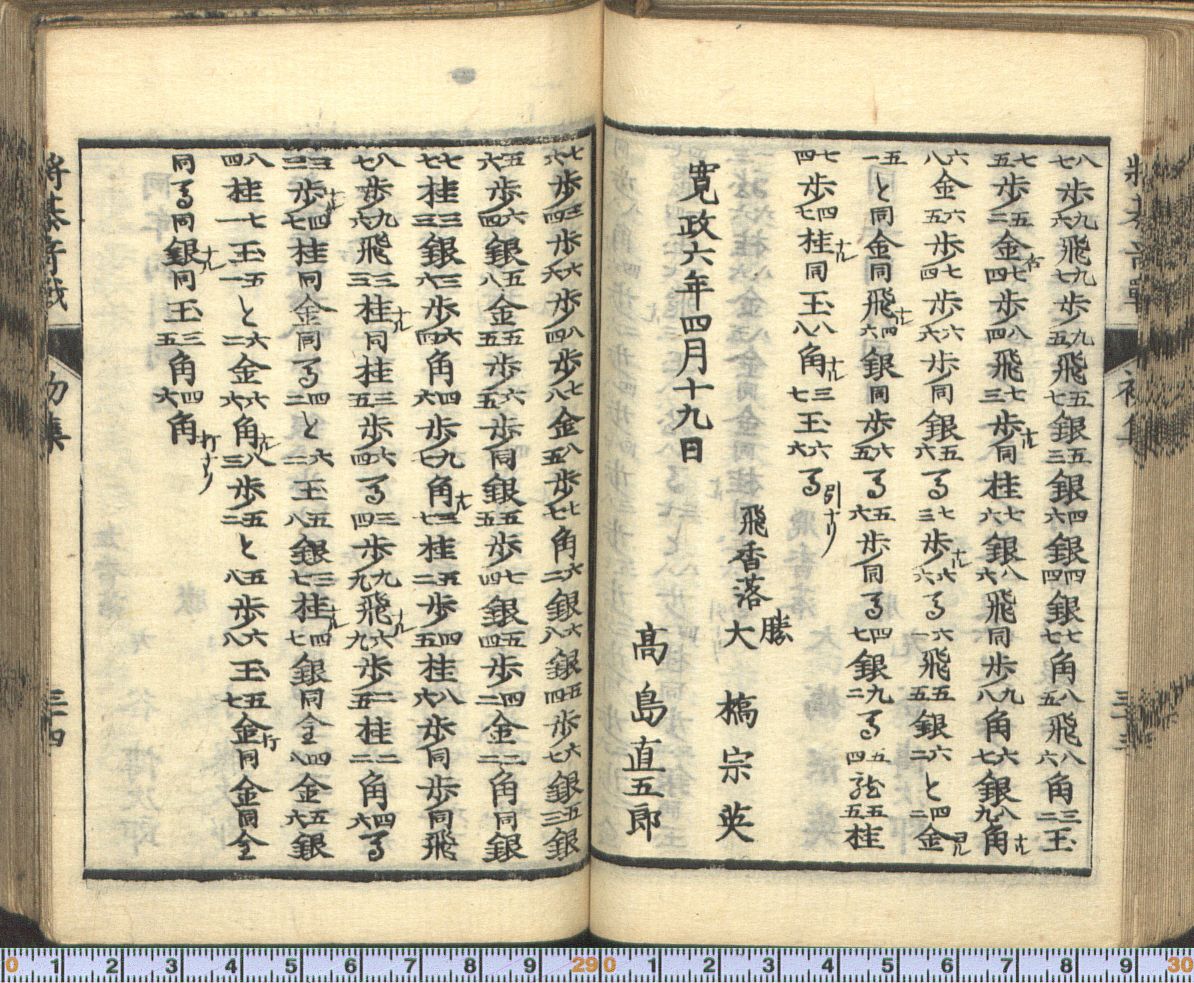 八七歩九六飛九七歩九五飛五七銀五三銀四六銀四四銀七七角八五飛八六角三二玉
七五歩五二金右七四歩八四飛七三歩ナル同桂七六銀八六飛同歩九八角六七銀八九角ナル
六八金六五歩七四歩六六歩同銀五六馬七三歩ナル六六馬六一飛五五銀六二と四二金ヨル
五一と同金同飛ナル四六銀同歩六五馬五六歩同馬四七銀九二馬五四龍五五桂
七四歩四七桂ナル同玉八八角ナル三七玉六六馬引ナリ
寛政六年四月十九日
飛香落 勝 大橋宗英
高島直五郎
七六歩三四歩六六歩八四歩七八金八五歩七七角六二銀六八銀五四歩六七銀五三銀
五六歩六四銀五八金五五歩六五歩同銀五五歩七四銀五四歩四二金二二角同銀
七七桂三三銀三六歩六四角四六歩九七角ナル三七桂五二歩四五桂八六歩同歩同飛
八七歩九六飛三三桂ナル同桂三五歩六四馬三四歩九九飛ナル六九歩二五桂二二角四六馬
三三歩ナル四七桂同金同馬四二と六二玉五八銀三七桂ナル四七銀同全四八金五六銀
八四桂七一玉五一と六二金六六角ナル八三歩五二と五八歩六八玉五七金打同金同全
同馬同銀ナル同玉三五角四六角打ナリ